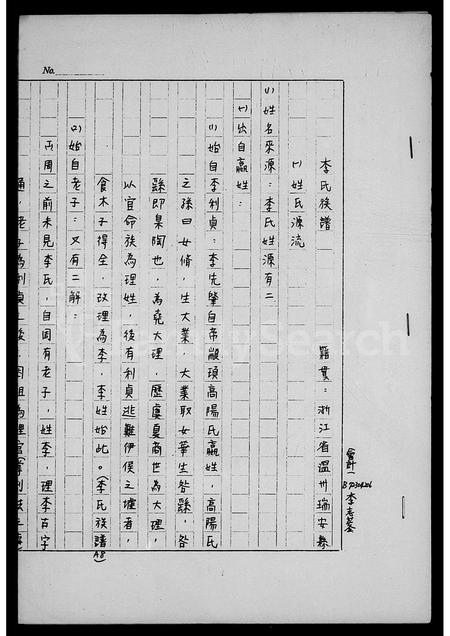 No.
(會計一
B7304206 李志鎣
李氏族譜 籍貫：浙江省溫州瑞安縣
㈠姓氏源流
⑴姓名來源：李氏姓源有二
㈠出自嬴姓：
⑴始自李利貞：李先肇自帝顓頊高陽氏嬴姓，高陽氏
之孫曰女脩，生大業，大業取女華生咎繇，咎
繇即臯陶也，為堯大理，歷虞夏商世為大理，
以官命族為理姓，後有利貞逃難伊侯之墟者，
食木子得全，改理為李，李姓始此。(李氏族譜
A8)
⑵始自老子：又有二解：
㈠周之前未見李氏，自周有老子，姓李，理李百字
通，老子為利貞之後，因祖為理官
FamilySearch